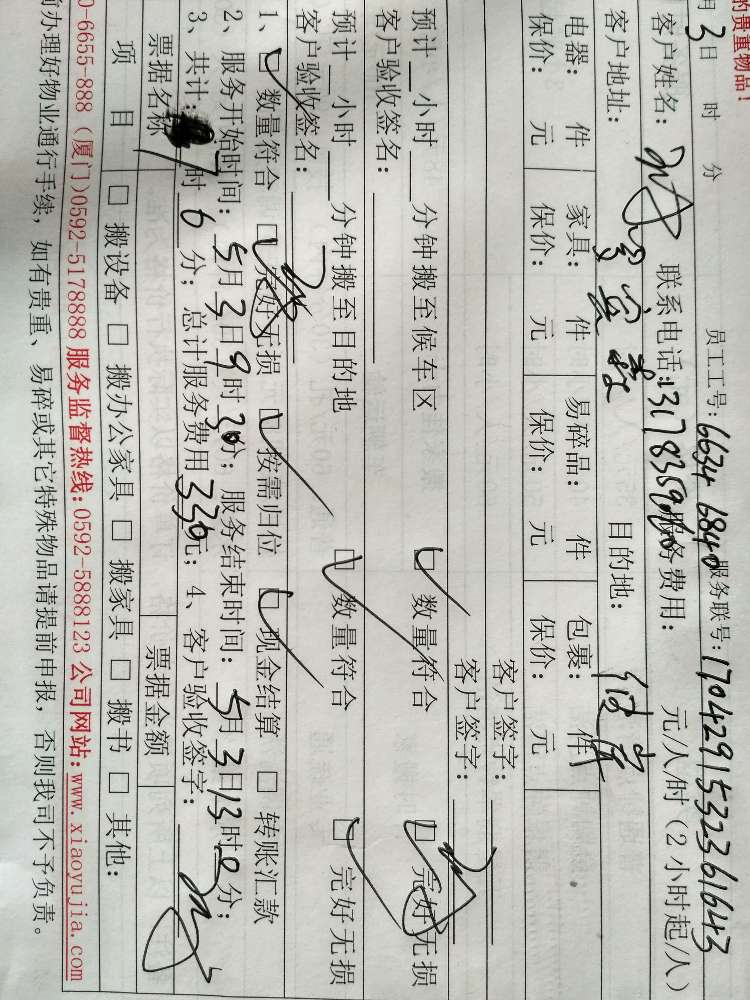 的贵重物品!
月3日 时 分 员工工号:6634 6840 服务联号:170429153236 1643
客户姓名: 联系电话: 服务费用: 元/人/时(2小时起/人)
客户地址: 目的地:
电器: 件 家具: 件 易碎品: 件 包裹: 件
保价: 元 保价: 元 保价: 元 保价: 元
客户签字:
客户签字:
预计__小时__分钟搬至候车区 □ 数量符合 □ 完好无损
客户验收签名:
预计__小时__分钟搬至目的地 □ 数量符合 □ 完好无损
客户验收签名:
1、□ 数量符合 □ 完好无损 □ 按需归位 □ 现金结算 □ 转账汇款
2、服务开始时间:5月3日9时20分;服务结束时间:5月3日13时 分;
3、共计: 时6分;总计服务费用330元;4、客户验收签字:
票据名称 票据金额
项 目 □ 搬设备 □ 搬办公家具 □ 搬家具 □ 搬书 □ 其他:
0-6655-888(厦门)0592-5178888 服务监督热线:0592-5888123 公司网站:www.xiaoyujia.com
前办理好物业通行手续,如有贵重、易碎或其它特殊物品请提前申报,否则我司不予负责。